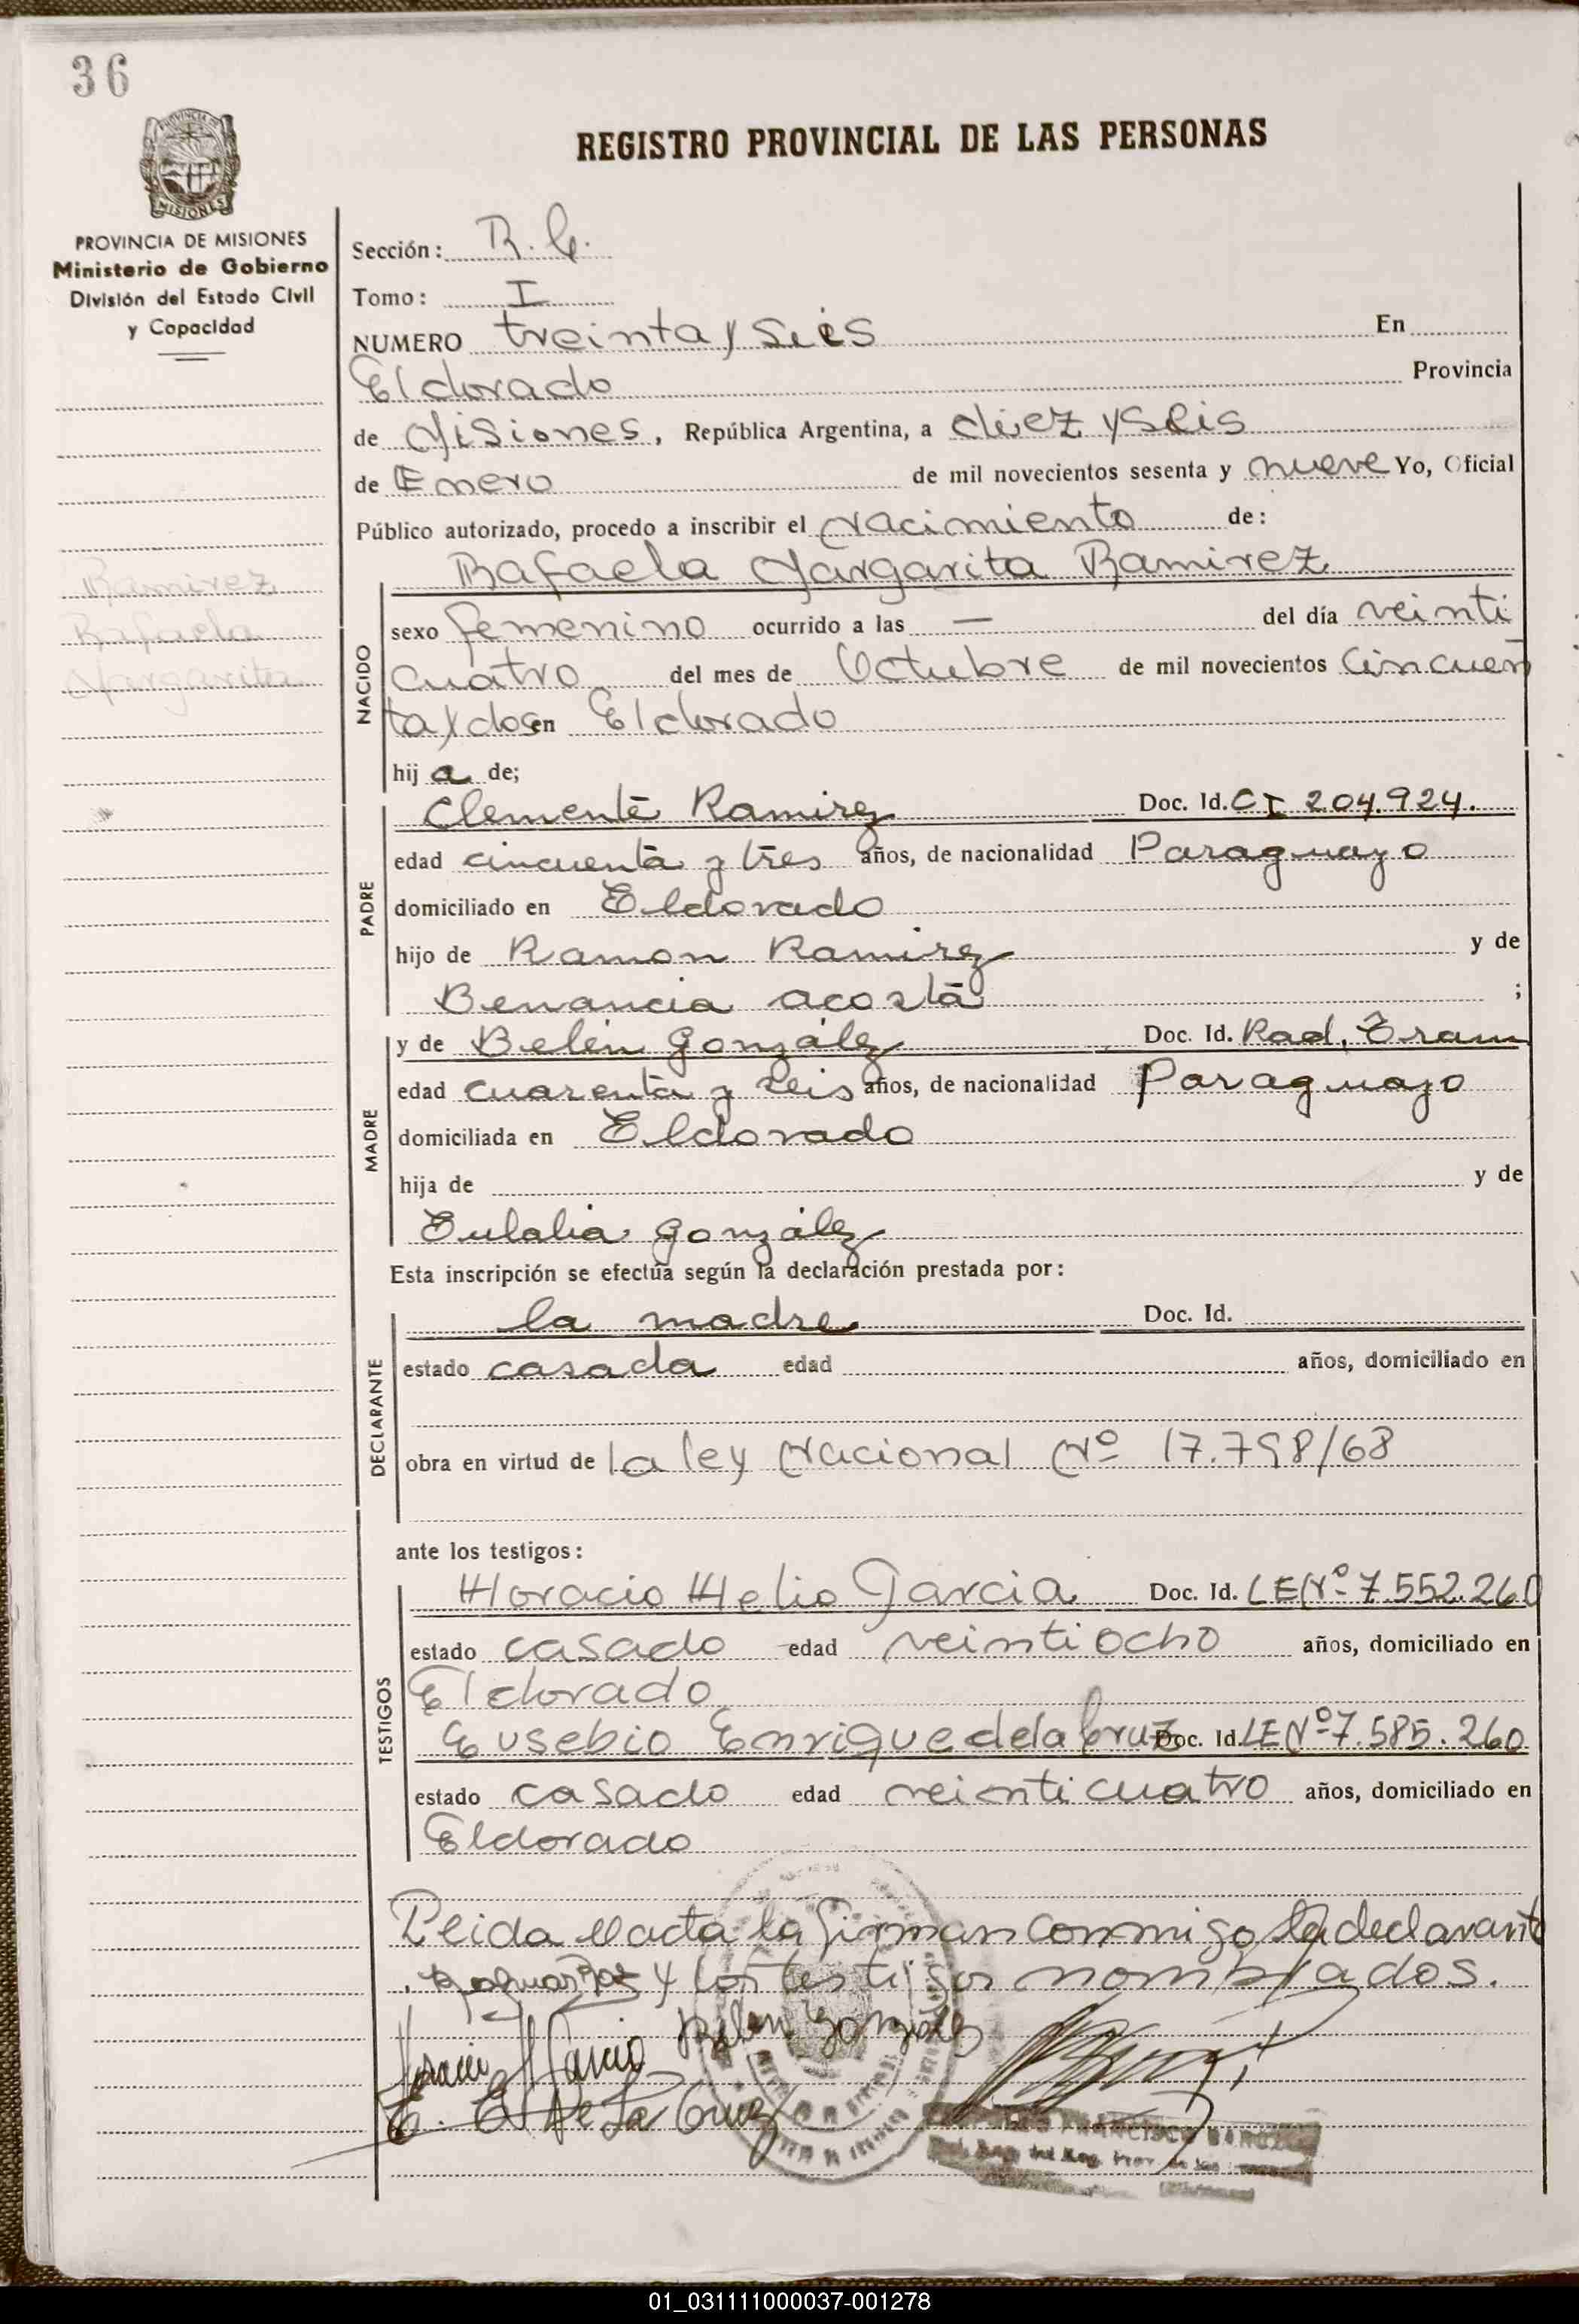 36
REGISTRO PROVINCIAL DE LAS PERSONAS
PROVINCIA DE
MISIONES
PROVINCIA DE MISIONES
Ministerio de Gobierno
División del Estado Civil
y Capacidad
Ramirez
Rafaela
Margarita
Sección: R. C.
Tomo: I
NUMERO treinta y seis En
Eldorado Provincia
de Misiones, República Argentina, a diez y seis
de Enero de mil novecientos sesenta y nueve Yo, Oficial
Público autorizado, procedo a inscribir el Nacimiento de:
Rafaela Margarita Ramirez
NACIDO
sexo femenino ocurrido a las — del día veinti
cuatro del mes de Octubre de mil novecientos cincuen
ta y dos en Eldorado
hij a de;
PADRE
Clemente Ramirez Doc. Id. CI 204.924.
edad cincuenta y tres años, de nacionalidad Paraguayo
domiciliado en Eldorado
hijo de Ramon Ramirez y de
Benancia acosta ;
MADRE
y de Belén González Doc. Id. Rad. Tram
edad cuarenta y seis años, de nacionalidad Paraguayo
domiciliada en Eldorado
hija de y de
Eulalia González
Esta inscripción se efectúa según la declaración prestada por:
DECLARANTE
la madre Doc. Id.
estado casada edad años, domiciliado en
obra en virtud de la ley Nacional Nº 17.798/68
ante los testigos:
TESTIGOS
Horacio Helio Garcia Doc. Id. LE Nº 7.552.260
estado casado edad veintiocho años, domiciliado en
Eldorado
Eusebio Enrique de la Cruz Doc. Id. LE Nº 7.585.260
estado casado edad veinticuatro años, domiciliado en
Eldorado
Leida el acta la firman conmigo la declarante
y los testigos nombrados.
Belen Gonzalez
Horacio H Garcia
E. E. De La Cruz
FRANCISCO
01_031111000037-001278